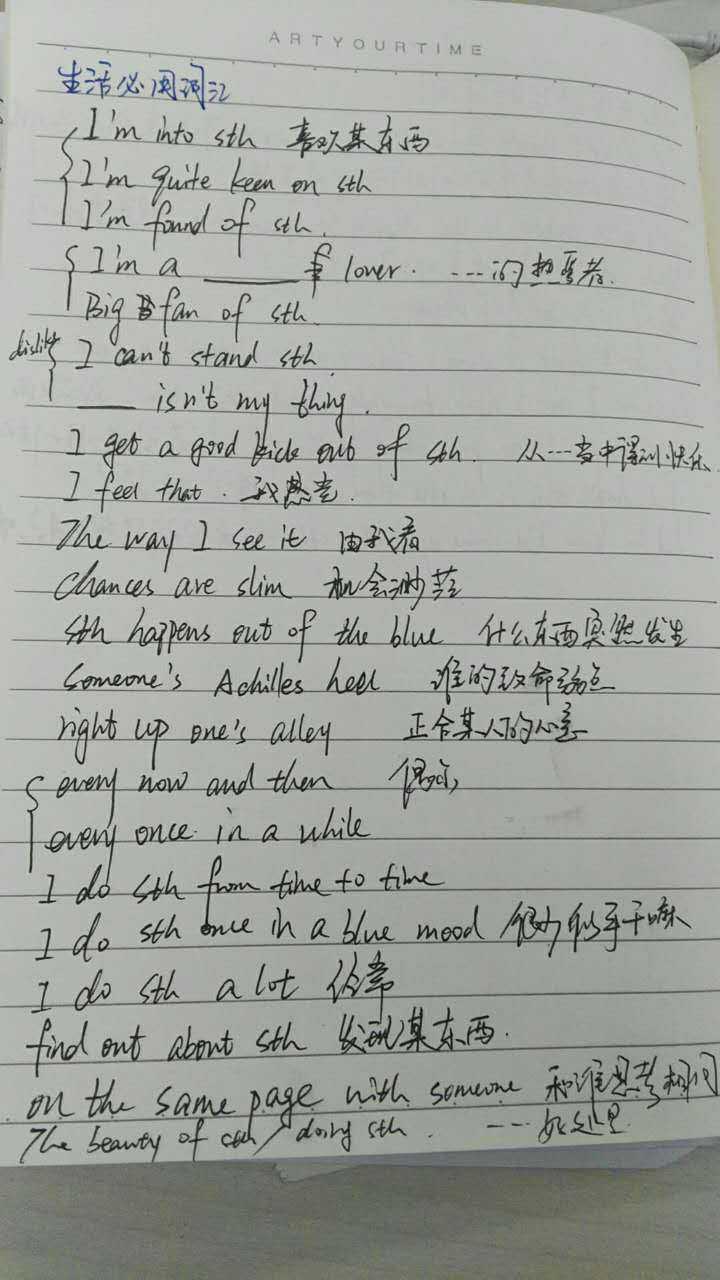 ARTYOURTIME
生活必用词汇
I'm into sth 喜欢某东西
I'm quite keen on sth
I'm found of sth.
I'm a ____ lover. ---的热爱者.
Big fan of sth.
dislike
I can't stand sth
____ isn't my thing.
I get a good kick out of sth. 从---当中得到快乐
I feel that. 我感觉.
The way I see it 由我看
Chances are slim 机会渺茫
sth happens out of the blue 什么东西突然发生
Someone's Achilles heel 谁的致命弱点
right up one's alley 正合某人的心意
every now and then 偶尔
every once in a while
I do sth from time to time
I do sth once in a blue mood 很少做某事
I do sth a lot 经常
find out about sth 发现某东西.
on the same page with someone 和谁思考相同
The beauty of sth / doing sth. ---好处是